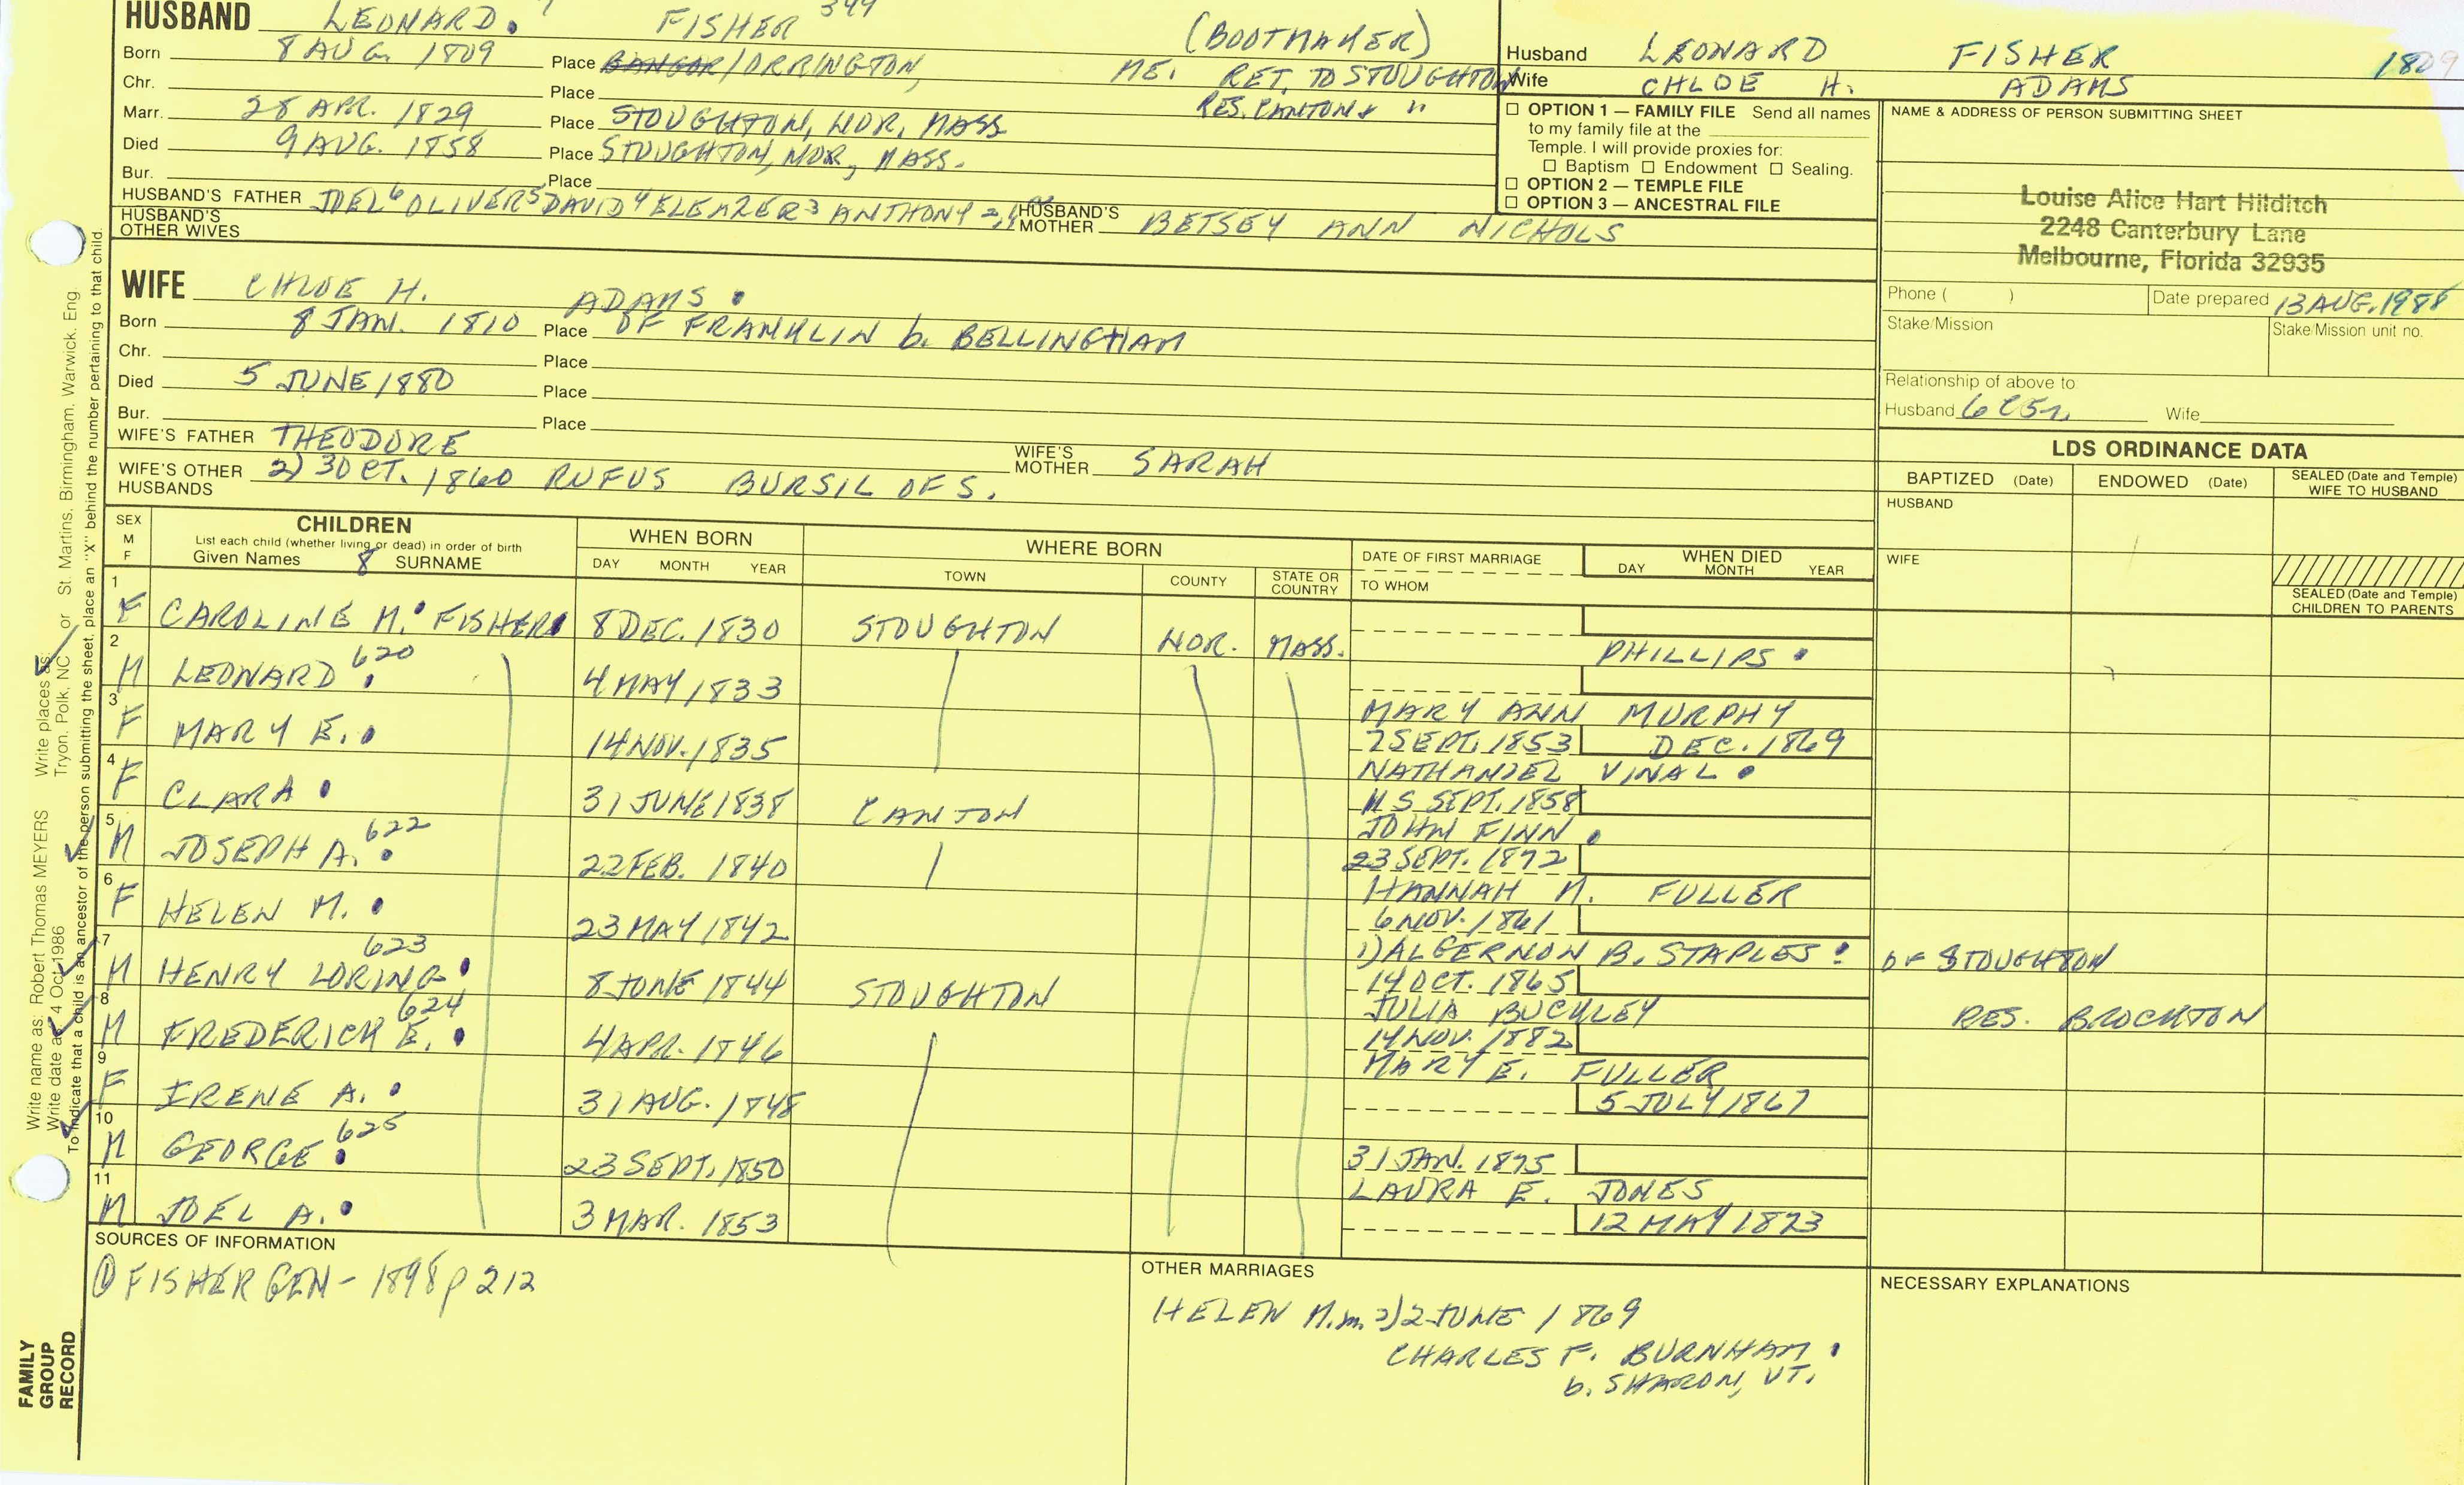 HUSBAND LEONARD. 7 FISHER 344 (BOOTMAKER)
Born 8 AUG. 1809 Place BANGOR/ORRINGTON, ME. RET. TO STOUGHTON
Chr. Place RES. CANTON & "
Marr. 28 APR. 1829 Place STOUGHTON, NOR, MASS
Died 9 AUG. 1858 Place STOUGHTON, NOR, MASS.
Bur. Place
HUSBAND'S FATHER JOEL 6 OLIVER 5 DAVID 4 ELEAZER 3 ANTHONY 2,1 HUSBAND'S MOTHER BETSEY ANN NICHOLS
HUSBAND'S OTHER WIVES
Husband LEONARD FISHER 1809
Wife CHLOE H. ADAMS
☐ OPTION 1 — FAMILY FILE Send all names
to my family file at the
Temple. I will provide proxies for:
☐ Baptism ☐ Endowment ☐ Sealing.
☐ OPTION 2 — TEMPLE FILE
☐ OPTION 3 — ANCESTRAL FILE
NAME & ADDRESS OF PERSON SUBMITTING SHEET
Louise Alice Hart Hilditch
2248 Canterbury Lane
Melbourne, Florida 32935
Phone ( ) Date prepared 13 AUG. 1988
Stake/Mission Stake/Mission unit no.
Relationship of above to
Husband 6C5r Wife
WIFE CHLOE H. ADAMS.
Born 8 JAN. 1810 Place OF FRANKLIN b. BELLINGHAM
Chr. Place
Died 5 JUNE 1880 Place
Bur. Place
WIFE'S FATHER THEODORE WIFE'S MOTHER SARAH
WIFE'S OTHER HUSBANDS 2) 3 OCT. 1860 RUFUS BURSIL OF S.
LDS ORDINANCE DATA
BAPTIZED (Date) ENDOWED (Date) SEALED (Date and Temple) WIFE TO HUSBAND
HUSBAND
WIFE
SEALED (Date and Temple) CHILDREN TO PARENTS
SEX M F CHILDREN List each child (whether living or dead) in order of birth Given Names 8 SURNAME
WHEN BORN DAY MONTH YEAR
WHERE BORN TOWN COUNTY STATE OR COUNTRY
DATE OF FIRST MARRIAGE TO WHOM
WHEN DIED DAY MONTH YEAR
1 F CAROLINE M. FISHER 8 DEC. 1830 STOUGHTON NOR. MASS.
PHILLIPS.
2 M LEONARD 620 4 MAY 1833
MARY ANN MURPHY
3 F MARY E. 14 NOV. 1835 7 SEPT. 1853 DEC. 1869
NATHANIEL VINAL.
4 F CLARA 31 JUNE 1838 CANTON 11 S SEPT. 1858
JOHN FINN.
5 M JOSEPH A. 622 22 FEB. 1840 23 SEPT. 1872
HANNAH M. FULLER
6 F HELEN M. 23 MAY 1842 6 NOV. 1861
1) ALGERNON B. STAPLES. OF STOUGHTON
7 M HENRY LORING 623 8 JUNE 1844 STOUGHTON 14 OCT. 1865
JULIA BUCKLEY RES. BROCKTON
8 M FREDERICK E. 624 4 APR. 1846 14 NOV. 1882
MARY E. FULLER
9 F IRENE A. 31 AUG. 1848 5 JULY 1867
10 M GEORGE 625 23 SEPT. 1850 31 JAN. 1875
LAURA E. JONES
11 M JOEL A. 3 MAR. 1853 12 MAY 1873
SOURCES OF INFORMATION
① FISHER GEN - 1898 p 212
OTHER MARRIAGES
HELEN M. m. 2) 2 JUNE 1869
CHARLES F. BURNHAM.
b. SHARON, VT.
NECESSARY EXPLANATIONS
Write name as: Robert Thomas MEYERS Write places as: St. Martins, Birmingham, Warwick, Eng.
Write date as: 4 Oct 1986 Tryon, Polk, NC or
To indicate that a child is an ancestor of the person submitting the sheet, place an "X" behind the number pertaining to that child.
FAMILY GROUP RECORD